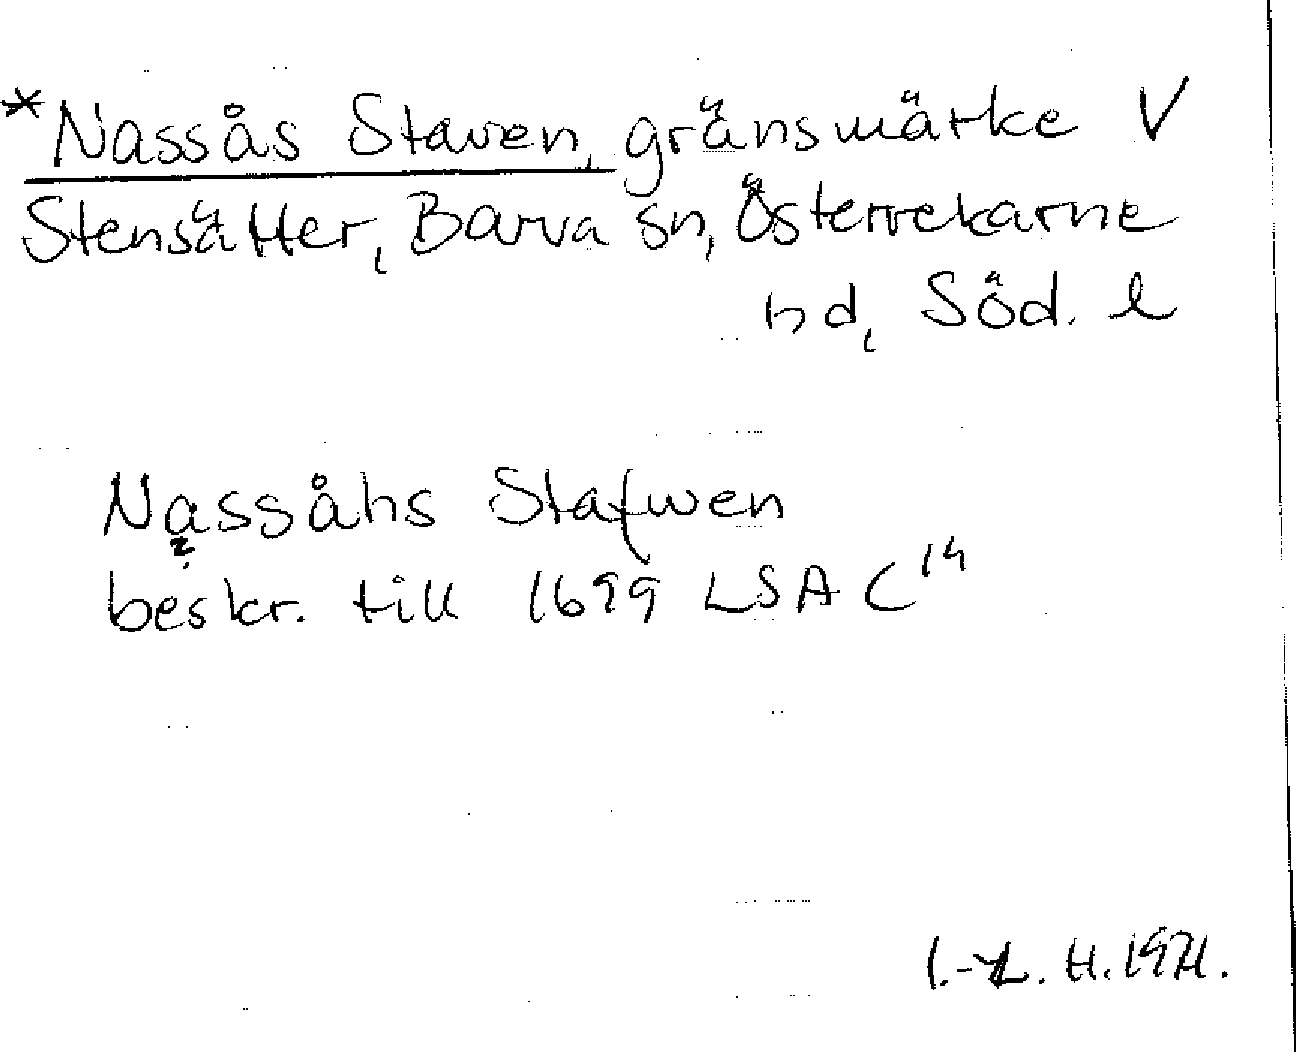 *Nassås Staven, gränsmärke V
Stensätter, Barva sn, Österrekarne
hd, Söd. l
Nassåhs Stafwen
beskr. till 1699 LSA C14
I.-L. H. 1971.